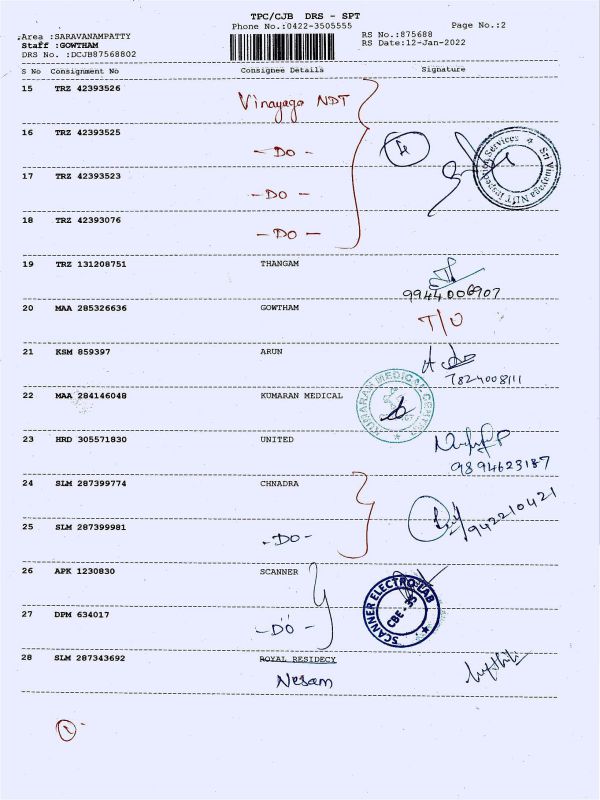 TPC/CJB DRS - SPT
Phone No.:0422-3505555
Page No.:2
Area :SARAVANAMPATTY
RS No.:875688
Staff :GOWTHAM
RS Date:12-Jan-2022
DRS No. :DCJB87568802
S No Consignment No Consignee Details Signature
15 TRZ 42393526 Vinayaga NDT
16 TRZ 42393525 - DO -
Sri Vinayaga NDT Inspection Services
17 TRZ 42393523 - DO -
18 TRZ 42393076 - DO -
19 TRZ 131208751 THANGAM
9944006907
20 MAA 285326636 GOWTHAM T/U
21 KSM 859397 ARUN
7824008111
22 MAA 284146048 KUMARAN MEDICAL
KUMARAN MEDICAL CENTER
23 HRD 305571830 UNITED
9894623187
24 SLM 287399774 CHNADRA
942210421
25 SLM 287399981 - DO -
26 APK 1230830 SCANNER
SCANNER ELECTRO LAB
CBE - 35
27 DPM 634017 - DO -
28 SLM 287343692 ROYAL RESIDECY
Nesam